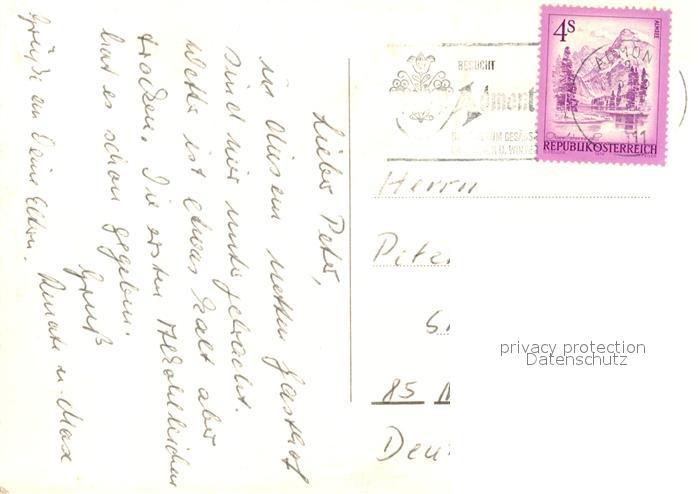 Lieber Peter,
in diesem netten Gasthof
sind wir untergebracht.
Wetter ist etwas kalt aber
trocken. Die ersten
hat es schon gegeben.
Gruß
Renate u. Max
Grüße an Deine Eltern.
BESUCHT
Admont
4S
ALMSEE
ADMON
REPUBLIK ÖSTERREICH
Herrn
Pete
85
Deu
privacy protection
Datenschutz